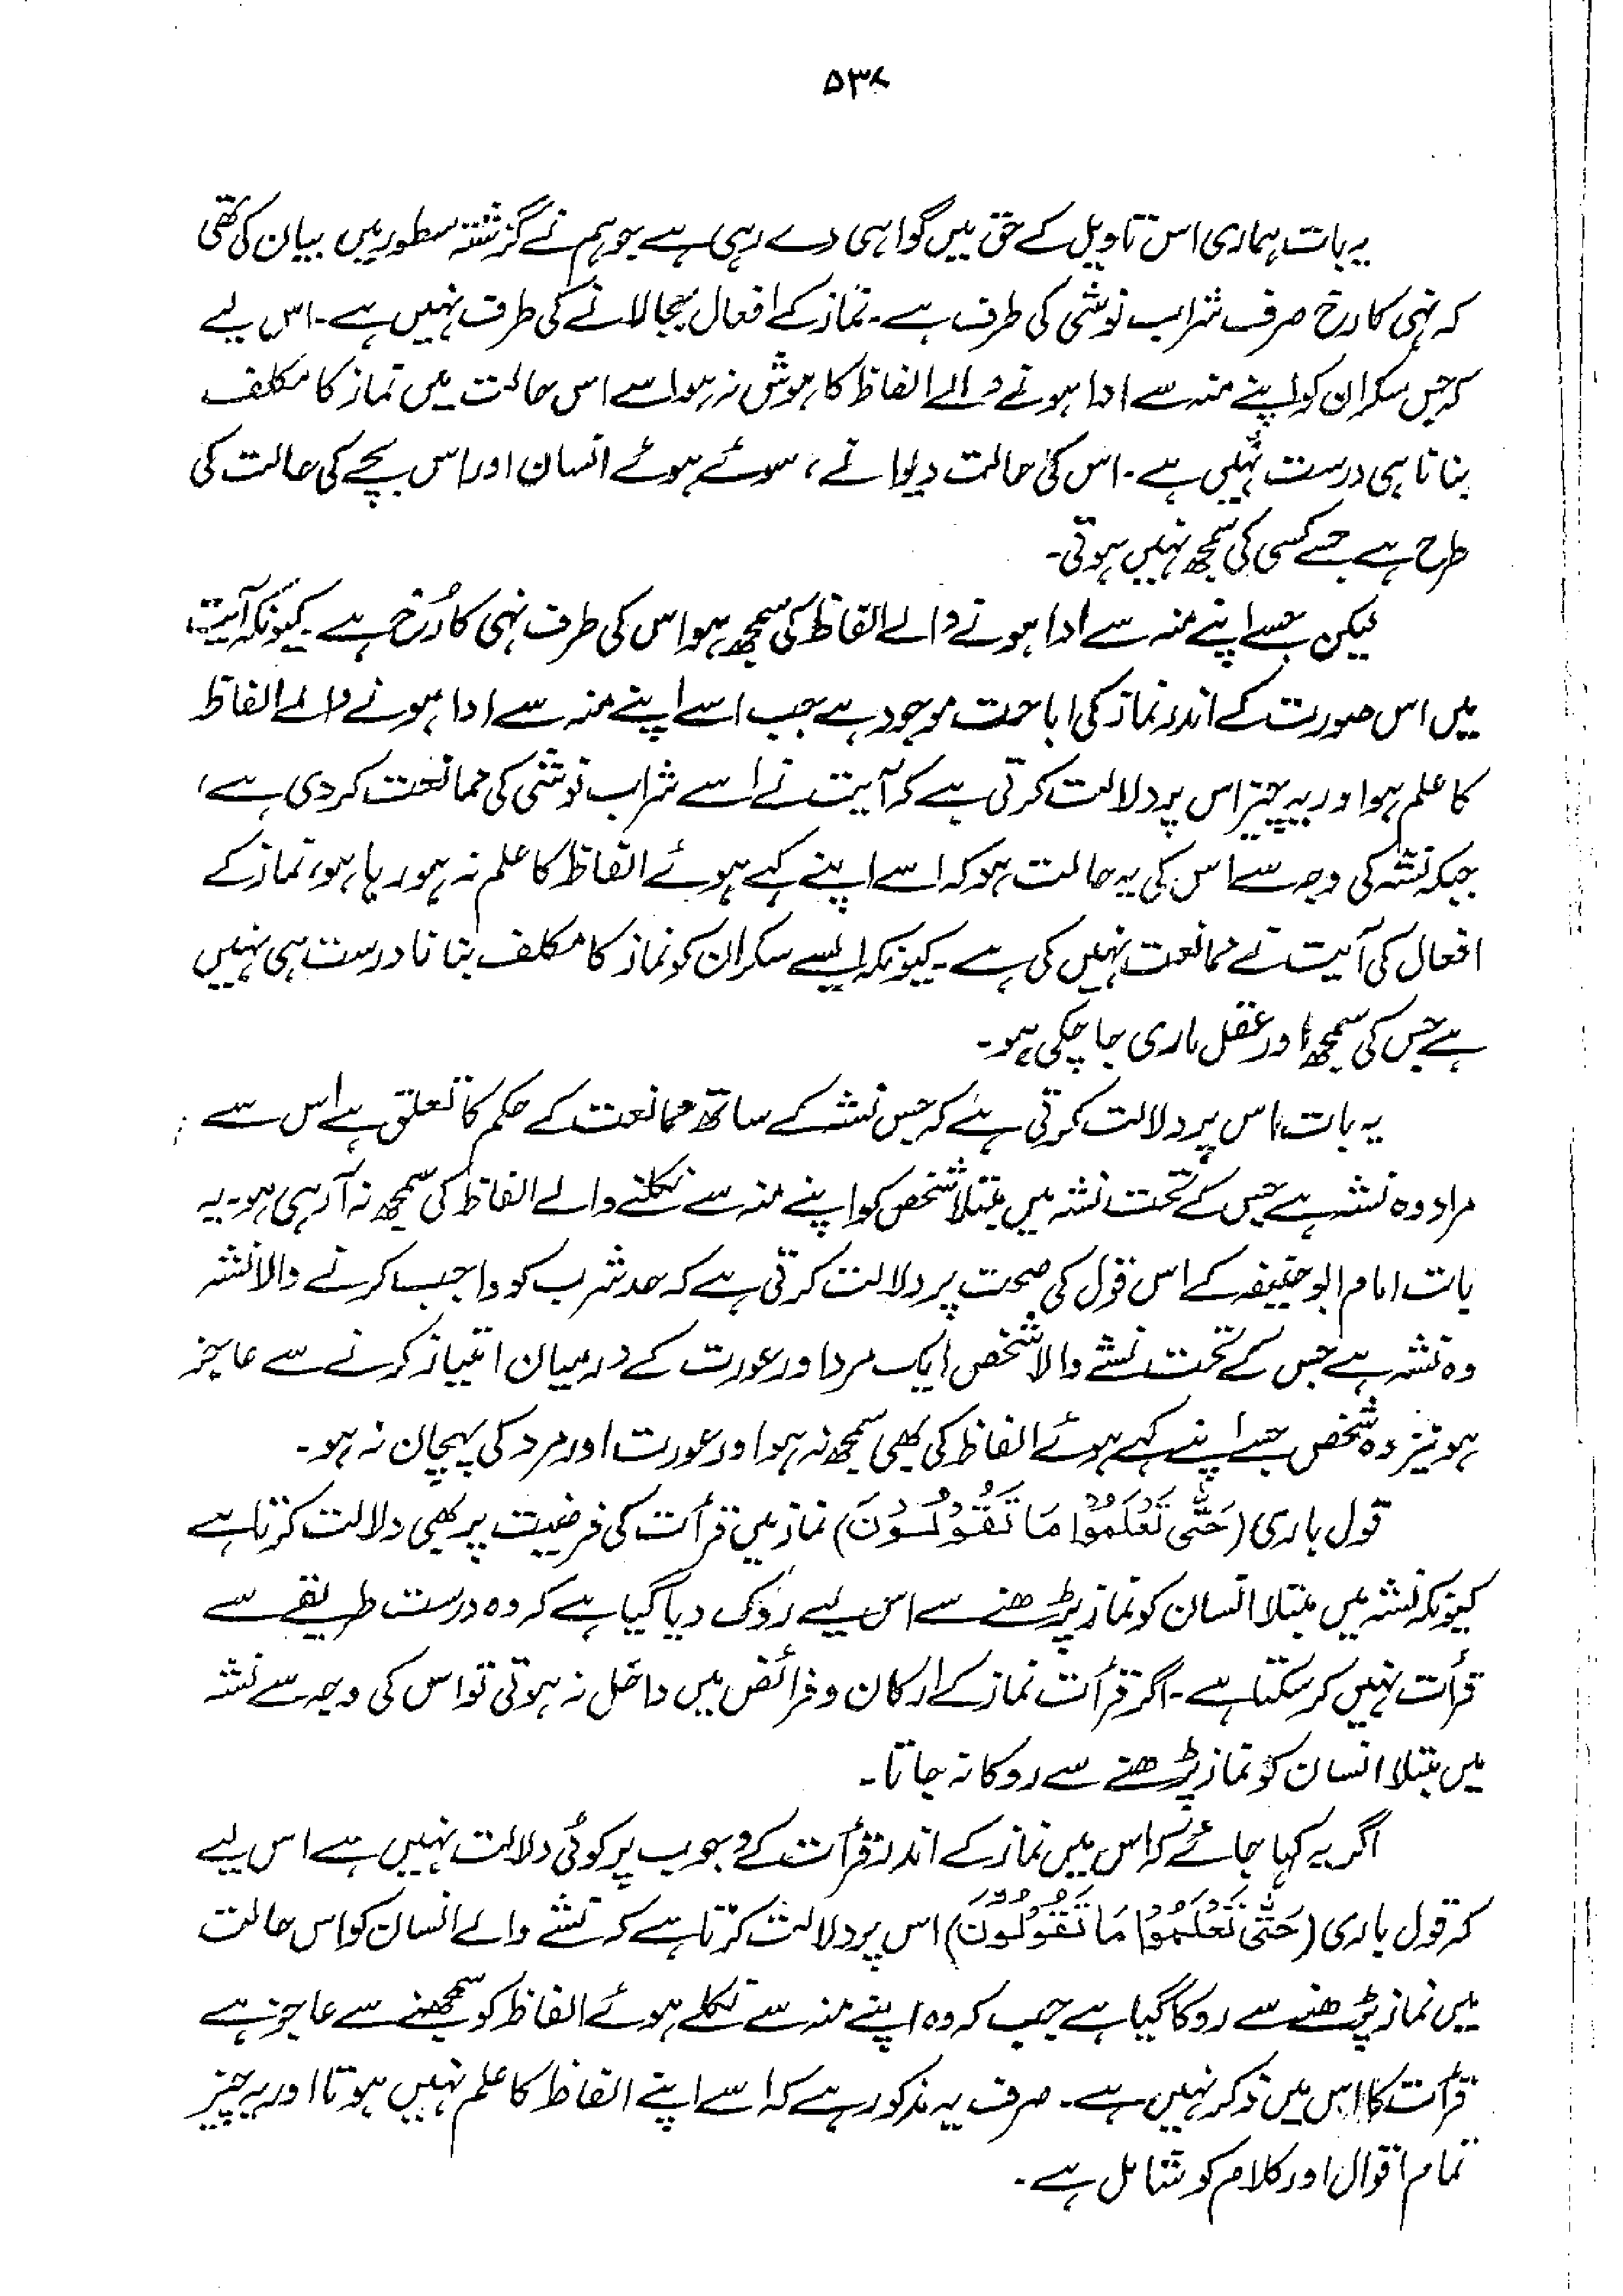 ۵۳۸
یہ بات ہماری اس تاویل کے حق میں گواہی دے رہی ہے جو ہم نے گزشتہ سطور میں بیان کی تھی
کہ نہی کا رخ صرف شراب نوشی کی طرف ہے۔ نماز کے افعال بجالانے کی طرف نہیں ہے۔ اس لیے
کہ جس سکران کو اپنے منہ سے ادا ہونے والے الفاظ کا ہوش نہ ہو اسے اس حالت میں نماز کا مکلف
بنانا ہی درست نہیں ہے۔ اس کی حالت دیوانے، سوئے ہوئے انسان اور اس بچے کی حالت کی
طرح ہے جسے کسی کی سمجھ نہیں ہوتی۔
لیکن جسے اپنے منہ سے ادا ہونے والے الفاظ کی سمجھ ہو اس کی طرف نہی کا رُخ ہے۔ کیونکہ آیت
میں اس صورت کے اندر نماز کی اباحت موجود ہے جب اسے اپنے منہ سے ادا ہونے والے الفاظ
کا علم ہو اور یہ چیز اس پر دلالت کرتی ہے کہ آیت نے اسے شراب نوشی کی ممانعت کر دی ہے،
جبکہ نشہ کی وجہ سے اس کی یہ حالت ہو کہ اسے اپنے کہے ہوئے الفاظ کا علم نہ ہو رہا ہو، نماز کے
افعال کی آیت نے ممانعت نہیں کی ہے۔ کیونکہ ایسے سکران کو نماز کا مکلف بنانا درست ہی نہیں
ہے جس کی سمجھ اور عقل ماری جا چکی ہو۔
یہ بات اس پر دلالت کرتی ہے کہ جس نشہ کے ساتھ ممانعت کے حکم کا تعلق ہے اس سے
مراد وہ نشہ ہے جس کے تحت نشہ میں مبتلا شخص کو اپنے منہ سے نکلنے والے الفاظ کی سمجھ نہ آ رہی ہو۔ یہ
بات امام ابوحنیفہ کے اس قول کی صحت پر دلالت کرتی ہے کہ حد شرب کو واجب کرنے والا نشہ
وہ نشہ ہے جس کے تحت نشے والا شخص ایک مرد اور عورت کے درمیان امتیاز کرنے سے عاجز
ہو نیز وہ شخص جسے اپنے کہے ہوئے الفاظ کی بھی سمجھ نہ ہو اور عورت اور مرد کی پہچان نہ ہو۔
قول باری (حَتّٰی تَعْلَمُوْا مَا تَقُوْلُوْنَ) نماز میں قرأت کی فرضیت پر بھی دلالت کرتا ہے
کیونکہ نشہ میں مبتلا انسان کو نماز پڑھنے سے اس لیے روک دیا گیا ہے کہ وہ درست طریقے سے
قرأت نہیں کر سکتا ہے۔ اگر قرأت نماز کے ارکان و فرائض میں داخل نہ ہوتی تو اس کی وجہ سے نشہ
میں مبتلا انسان کو نماز پڑھنے سے روکا نہ جاتا۔
اگر یہ کہا جائے کہ اس میں نماز کے اندر قرأت کے وجوب پر کوئی دلالت نہیں ہے اس لیے
کہ قول باری (حَتّٰی تَعْلَمُوْا مَا تَقُوْلُوْنَ) اس پر دلالت کرتا ہے کہ نشے والے انسان کو اس حالت
میں نماز پڑھنے سے روکا گیا ہے جب کہ وہ اپنے منہ سے نکلے ہوئے الفاظ کو سمجھنے سے عاجز ہے
قرأت کا اس میں ذکر نہیں ہے۔ صرف یہ مذکور ہے کہ اسے اپنے الفاظ کا علم نہیں ہوتا اور یہ چیز
تمام اقوال اور کلام کو شامل ہے۔